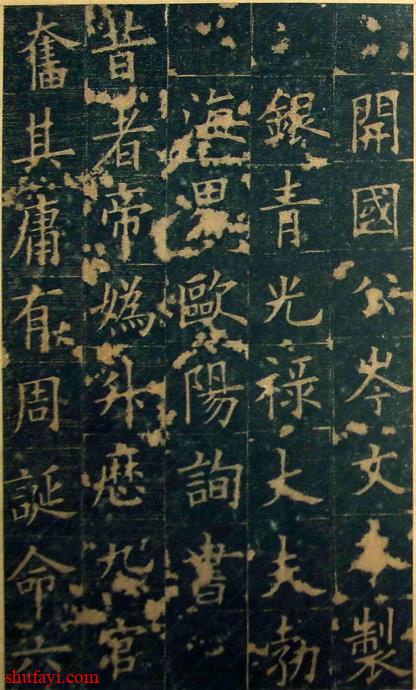 開國公岑文本製
銀青光祿大夫勃
海男歐陽詢書
昔者帝媯升歷九官
奮其庸有周誕命六
shufayi.com